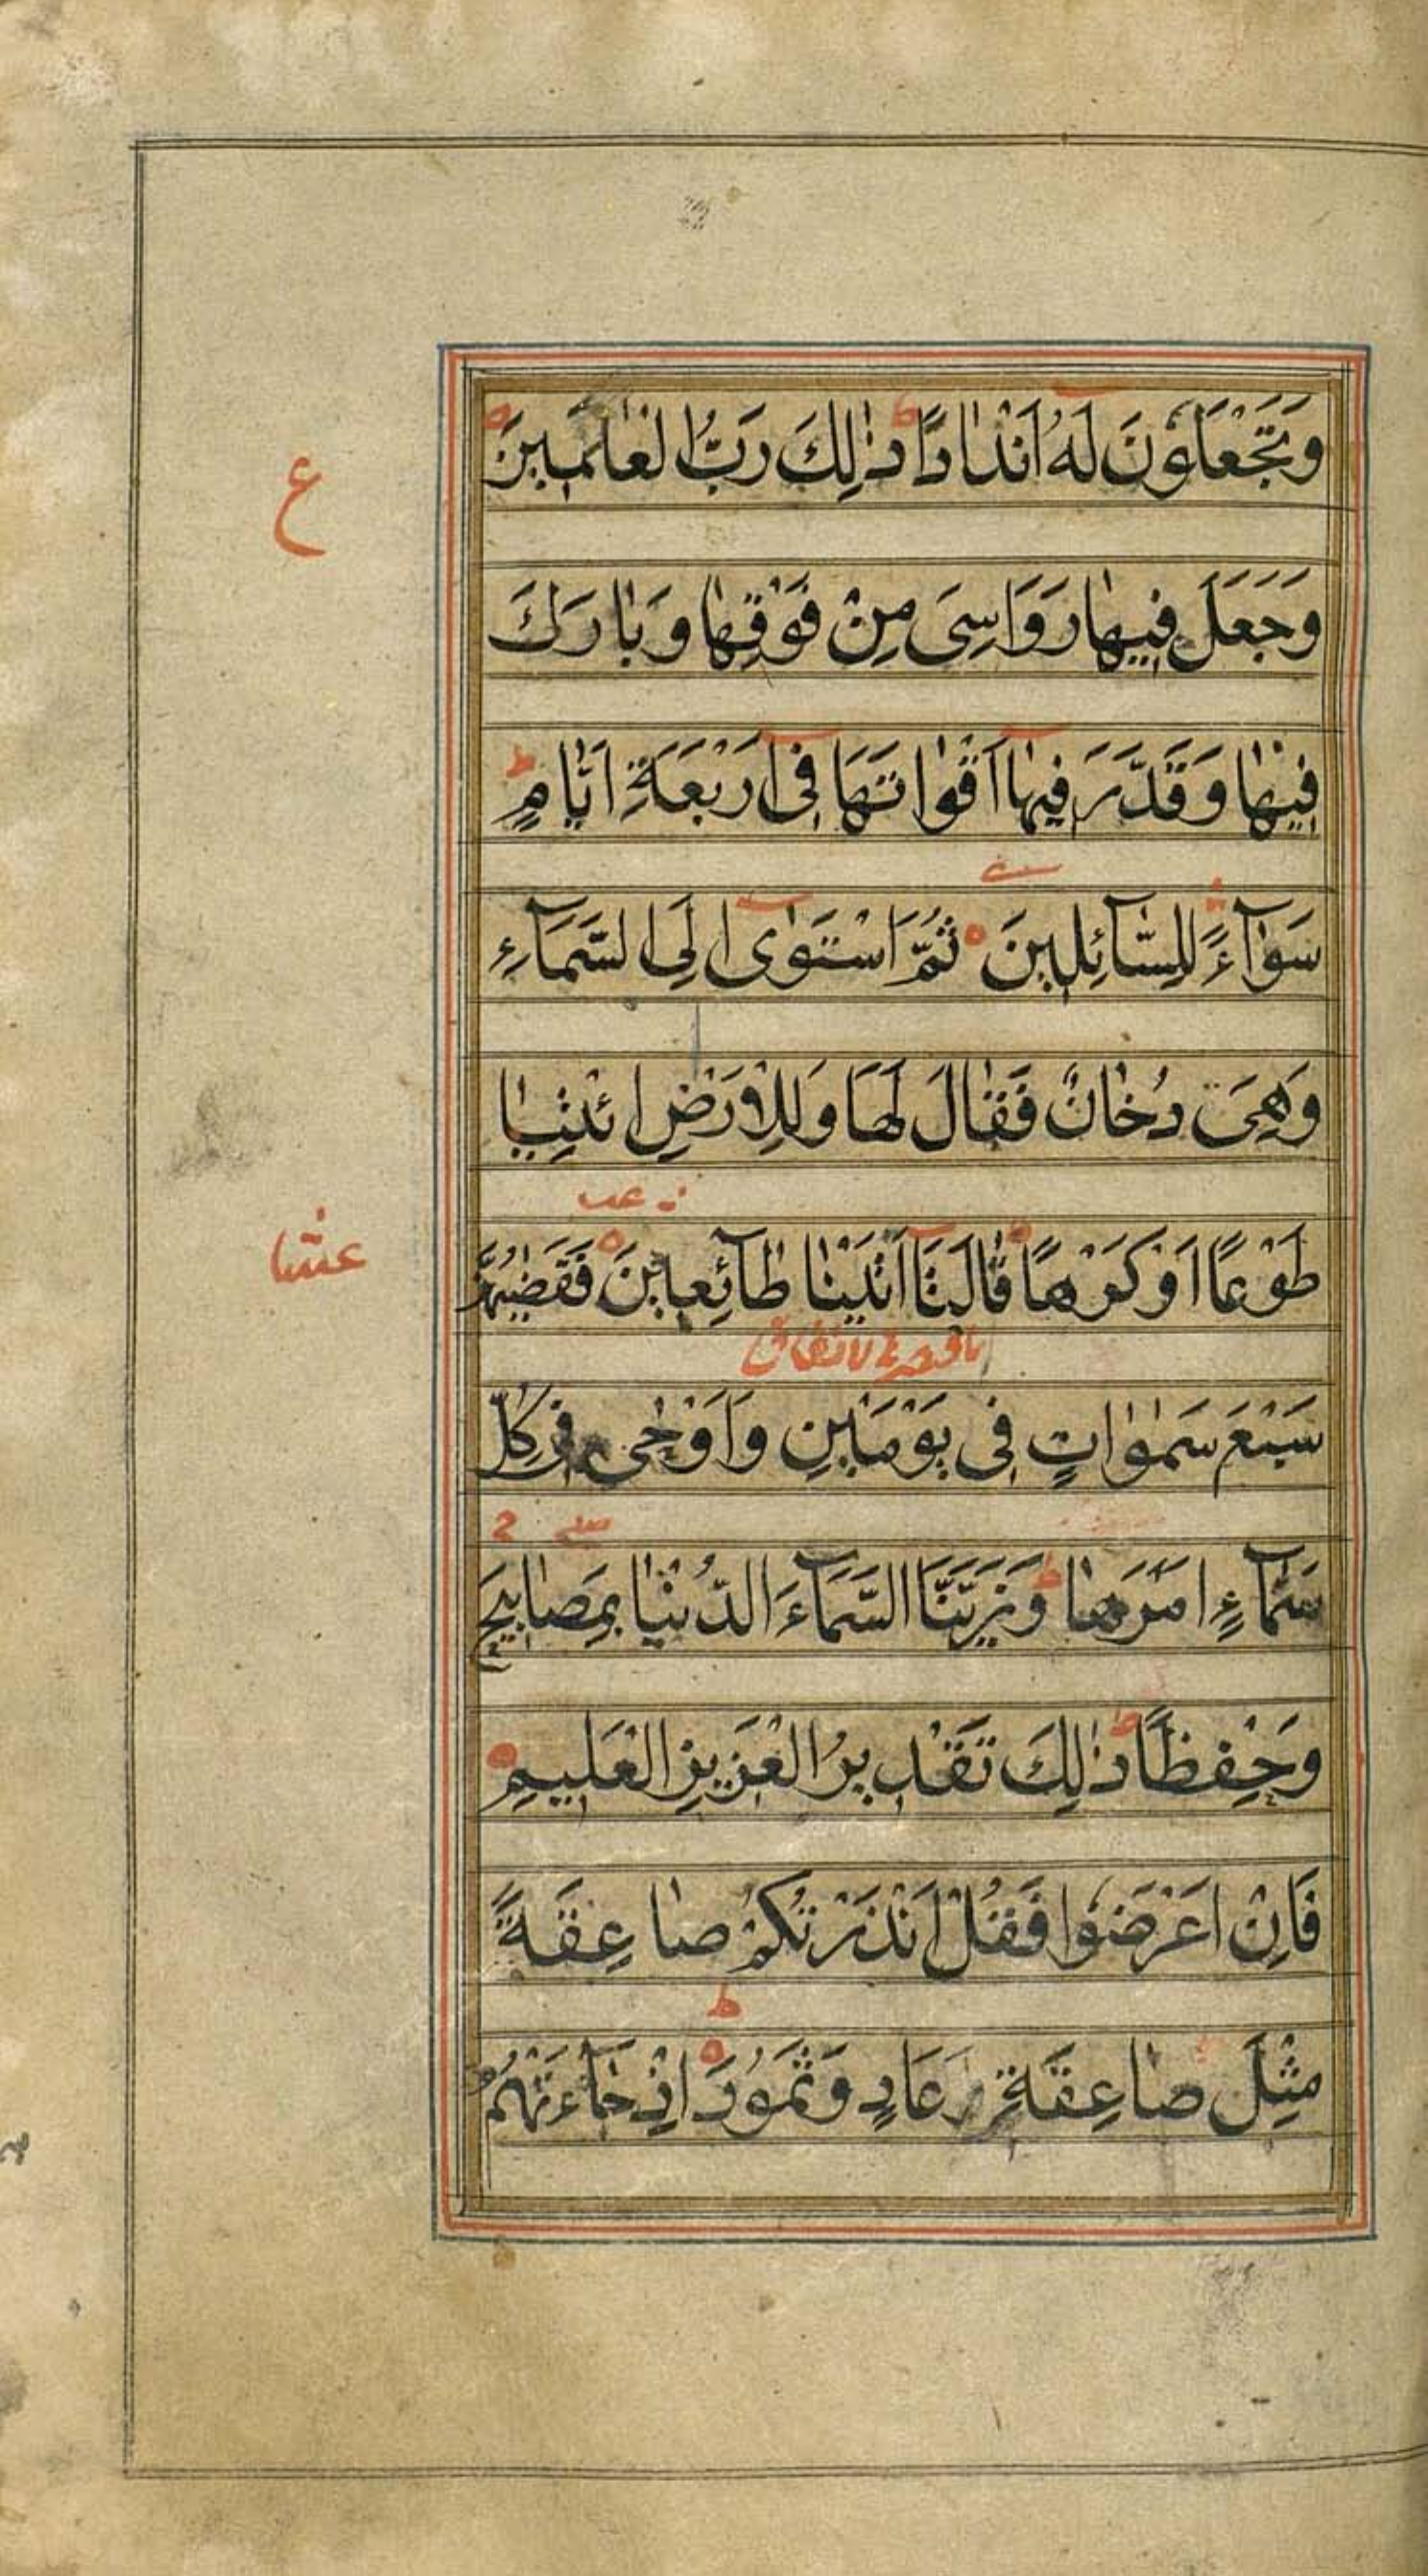 وَتَجْعَلُونَ لَهُ اَنْدَادًا ط ذٰلِكَ رَبُّ الْعٰلَمِينَ
ع
وَجَعَلَ فِيهَا رَوَاسِىَ مِنْ فَوْقِهَا وَبَارَكَ
فِيهَا وَقَدَّرَ فِيهَا اَقْوَاتَهَا فِى اَرْبَعَةِ اَيَّامٍ ط
سَوَآءً لِلسَّآئِلِينَ ثُمَّ اسْتَوٰى اِلَى السَّمَآءِ
وَهِىَ دُخَانٌ فَقَالَ لَهَا وَلِلْاَرْضِ ائْتِيَا
عب
طَوْعًا اَوْ كَرْهًا قَالَتَا اَتَيْنَا طَآئِعِينَ فَقَضٰيهُنَّ
عشا
سَبْعَ سَمٰوَاتٍ فِى يَوْمَيْنِ وَاَوْحٰى فِى كُلِّ
صلے
سَمَآءٍ اَمْرَهَا ط وَزَيَّنَّا السَّمَآءَ الدُّنْيَا بِمَصَابِيحَ
وَحِفْظًا ط ذٰلِكَ تَقْدِيرُ الْعَزِيزِ الْعَلِيمِ
فَاِنْ اَعْرَضُوا فَقُلْ اَنْذَرْتُكُمْ صَاعِقَةً
ط
مِثْلَ صَاعِقَةِ عَادٍ وَثَمُودَ اِذْ جَآءَتْهُمُ